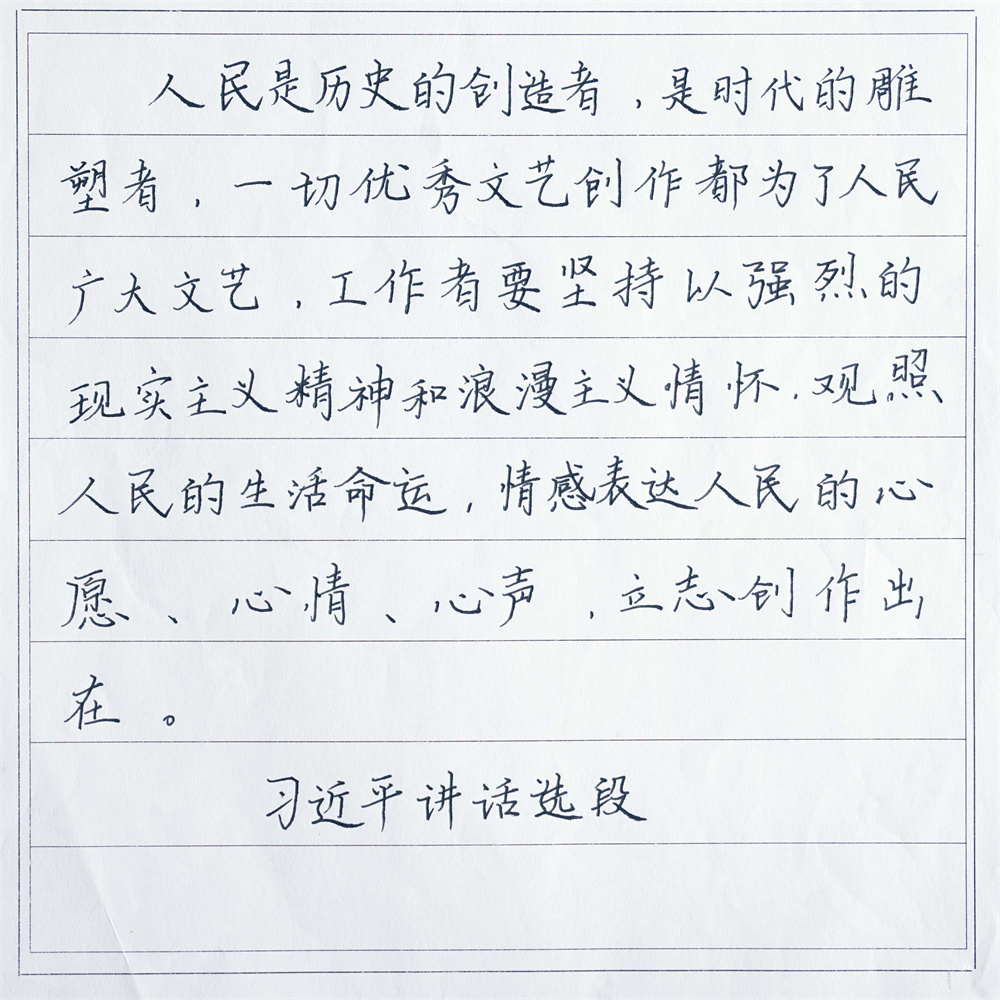 人民是历史的创造者，是时代的雕
塑者，一切优秀文艺创作都为了人民
广大文艺，工作者要坚持以强烈的
现实主义精神和浪漫主义情怀，观照
人民的生活命运，情感表达人民的心
愿、心情、心声，立志创作出
在。
习近平讲话选段